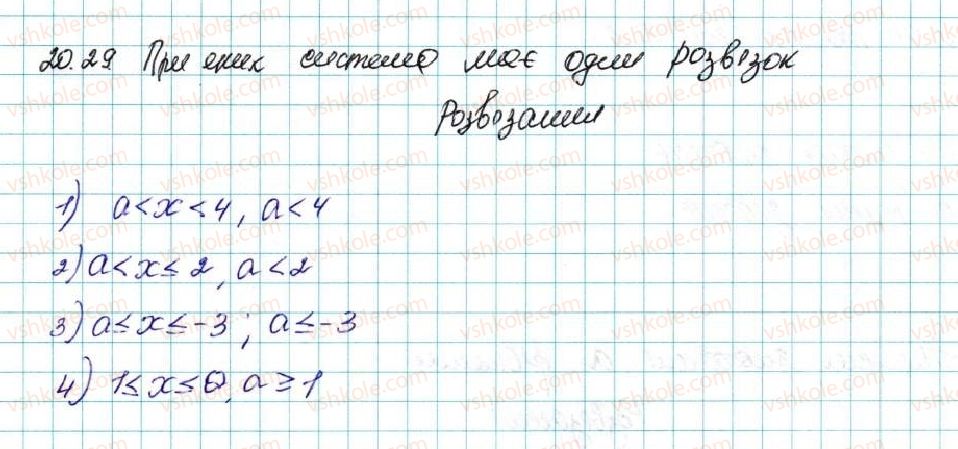 20.29 При яких система має один розвізок
Розвізання
1) a < x < 4, a < 4
2) a < x ≤ 2, a < 2
3) a ≤ x ≤ -3; a ≤ -3
4) 1 ≤ x ≤ a, a ≥ 1